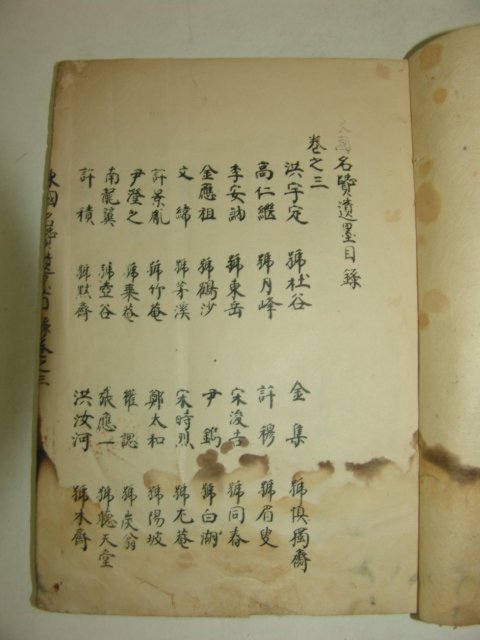 東國名賢遺墨目錄
卷之三
洪宇定 號杜谷 金集 號愼獨齋
高仁繼 號月峰 許穆 號眉叟
李安訥 號東岳 宋浚吉 號同春
金應祖 號鶴沙 尹鑴 號白湖
文緯 號茅溪 宋時烈 號尤菴
許景胤 號竹菴 鄭太和 號陽坡
尹澄之 號栗菴 權諰 號炭翁
南龍翼 號壺谷 張應一 號聽天堂
許積 號默齋 洪汝河 號木齋
東國名賢遺墨目錄卷之三